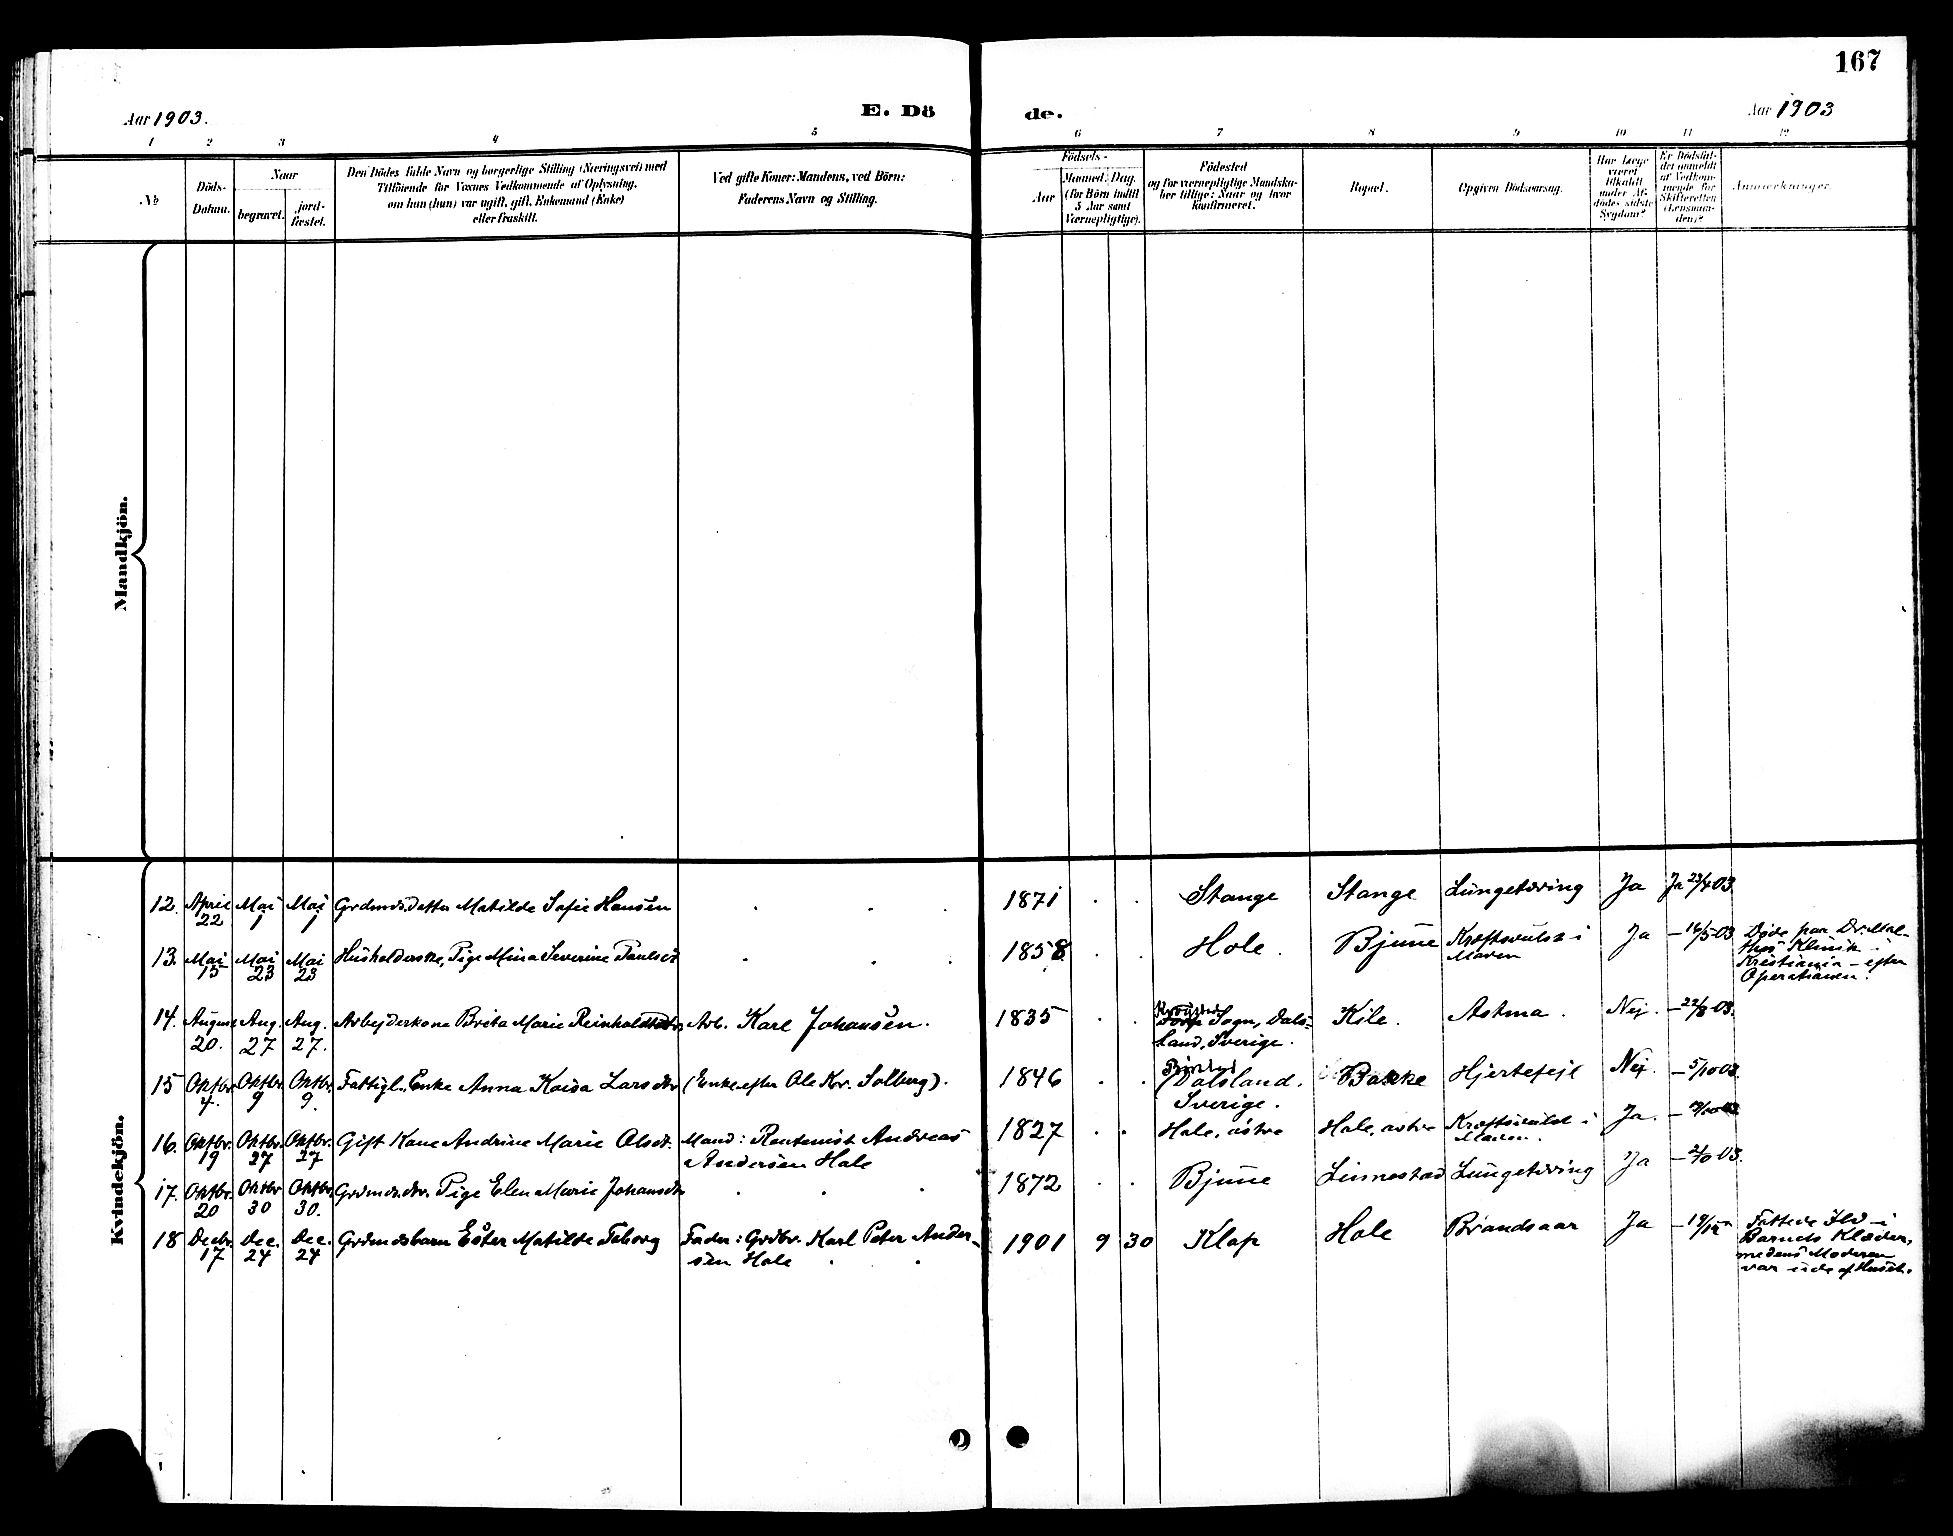 167
Aar 1903.
E. Dö
de.
Aar 1903
1 2 3 4 5 6 7 8 9 10 11 12
№
Döds-
Datum.
Naar
begravet.
jord-
fæstet.
Den Dödes fulde Navn og borgerlige Stilling (Næringsvei) med
Tilföiende for Voxnes Vedkommende af Oplysning,
om han (hun) var ugift, gift, Enkemand (Enke)
eller fraskilt.
Ved gifte Koner: Mandens, ved Börn:
Faderens Navn og Stilling.
Födsels-
Aar
Maaned. Dag.
(for Börn indtil
5 Aar samt
Værnepligtige).
Födested
og for værnepligtige Mandska-
ber tillige: Naar og hvor
konfirmeret.
Bopæl.
Opgiven Dödsaarsag.
Har Læge
været
tilkaldt
under Af-
dödes sidste
Sygdom?
Er Dödsfal-
det anmeldt
af Vedkom-
mende for
Skifteretten
(Lensman-
den)?
Anmerkninger.
Mandkjön.
Kvindekjön.
12. April 22 Mai 1 Mai 1 Grdmds.datter Matilde Sofie Hansen 1871 Stange Stange Lungetæring Ja Ja 23/4 03
13. Mai 15 Mai 23 Mai 23 Husholderske, Pige Mina Severine Paulsdt 1858 Hole. Bjune Kræftsvulst i Ja – 16/5 03 Døde paa Dr. Mal-
Maven thes Klinik i
Kristiania – efter
Operationen.
14. August 20. Aug. 27 Aug. 27. Arbejderkone Brita Marie Reinholdtsdtr Arb. Karl Johansen. 1835 Sogn, Dals- Kile. Astma. Nej. – 22/8 03.
land, Sverige.
15 Oktbr. 4. Oktbr. 9 Oktbr. 9. Fattigl. Enke Anna Kaisa Larsdtr (Enke efter Ole Kr. Solberg). 1846 Dalsland. Bakke Hjertefejl Nej. – 5/10 03.
Sverige.
16. Oktbr. 19 Oktbr. 27 Oktbr. 27 Gift Kone Andrine Marie Olsdt. Mand: Rentenist Andreas 1827 Hole, østre Hole, østre Kræftsvulst i Ja.
Andersen Hole Maven.
17. Oktbr. 20 Oktbr 30 Oktbr. 30. Grdmds.dtr. Pige Elen Marie Johansdtr 1872 Bjune Linnestad Lungetæring Ja
18 Decbr. 17 Dec. 24 Dec. 24 Grdmdsbarn Ester Matilde Faborg Fader: Grdbr. Karl Peter Ander- 1901 9 30 Klop Hole Brandsaar Ja – 19/12 Fattede Ild i
sen Hole Barnets Klæder,
medens Moderen
var ude af Huset.